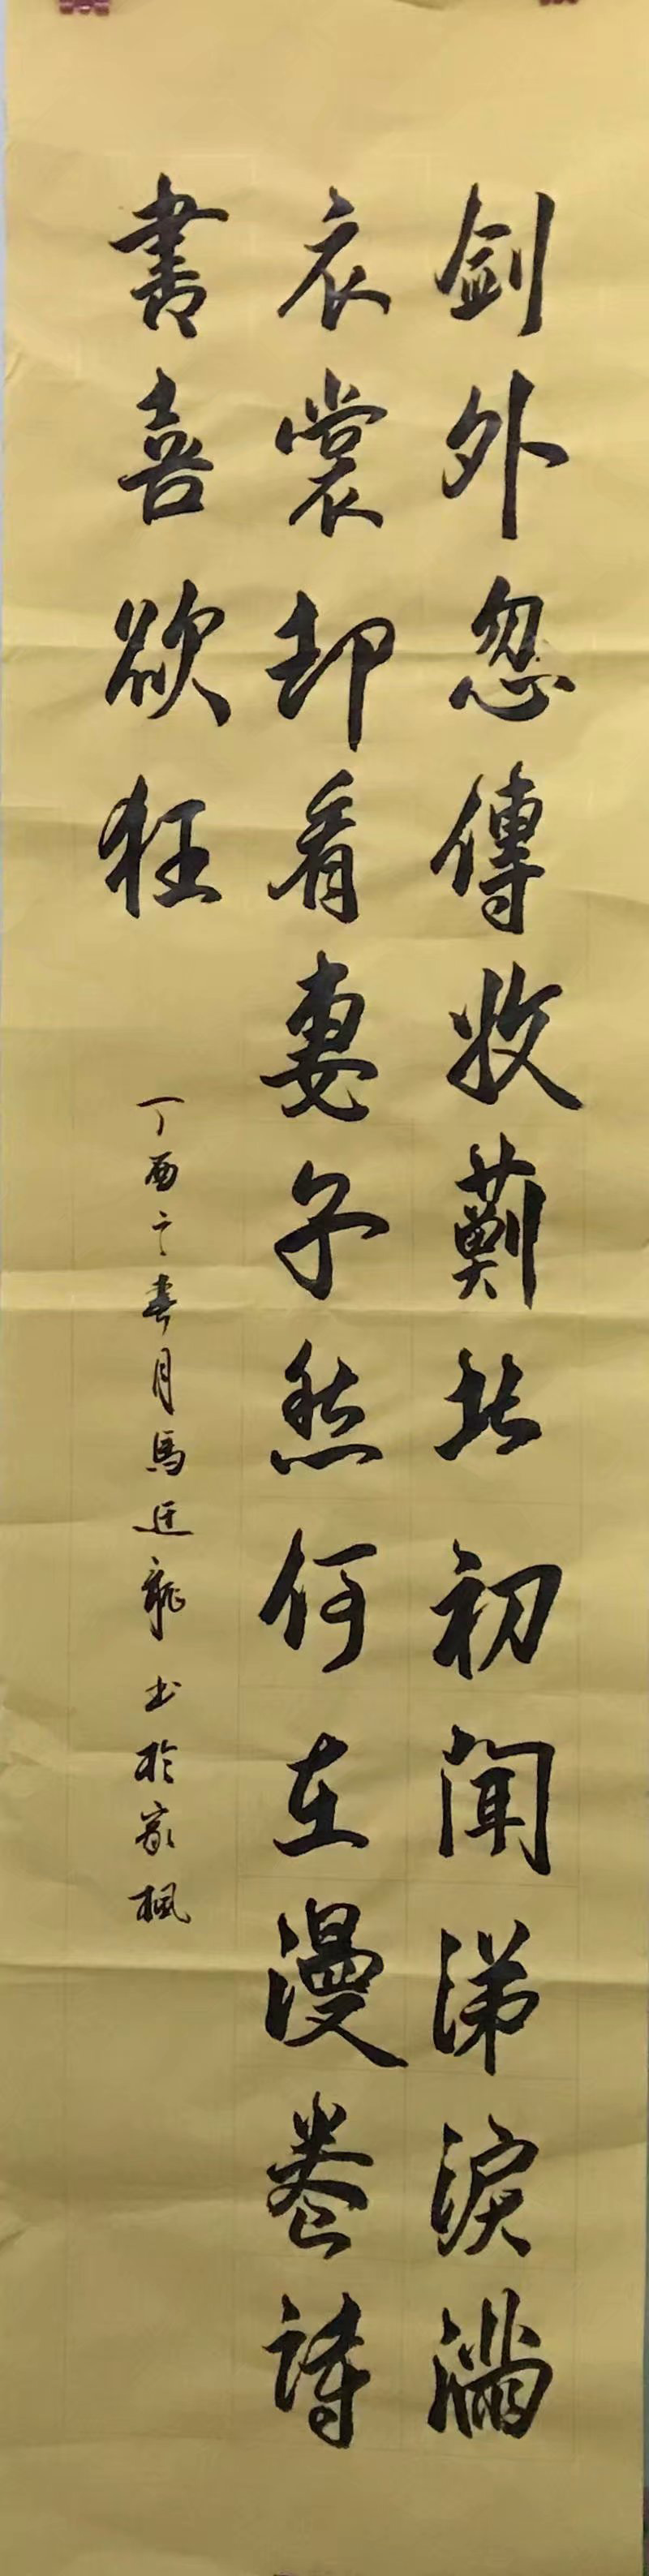 劍外忽傳收薊北初聞涕淚滿
衣裳却看妻子愁何在漫卷詩
書喜欲狂
丁酉之春月馬廷龍书於家楓